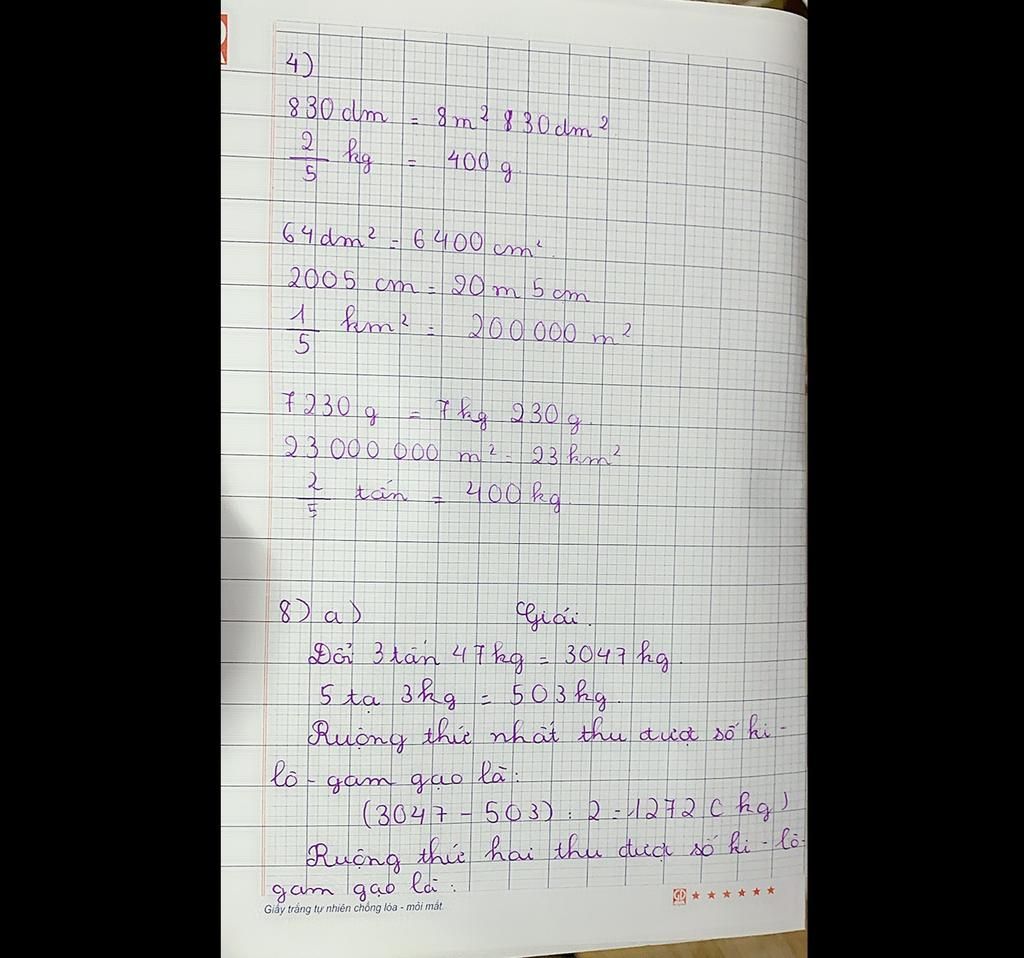 4)
830 dm = 8m² 830 dm²
2/5 kg = 400 g.
64dm² = 6400 cm².
2005 cm = 20 m 5 cm
1/5 km² = 200 000 m²
7230 g = 7 kg 230 g.
23 000 000 m² = 23 km²
2/5 tấn = 400 kg.
8) a) Giải.
Đổi 3 tấn 47 kg = 3047 kg.
5 tạ 3kg = 503 kg.
Ruộng thức nhất thu được số ki-
lô-gam gạo là:
(3047 - 503) : 2 = 1272 ( kg )
Ruộng thức hai thu được số ki-lô-
gam gạo là:
Giấy trắng tự nhiên chống lóa - mỏi mắt.